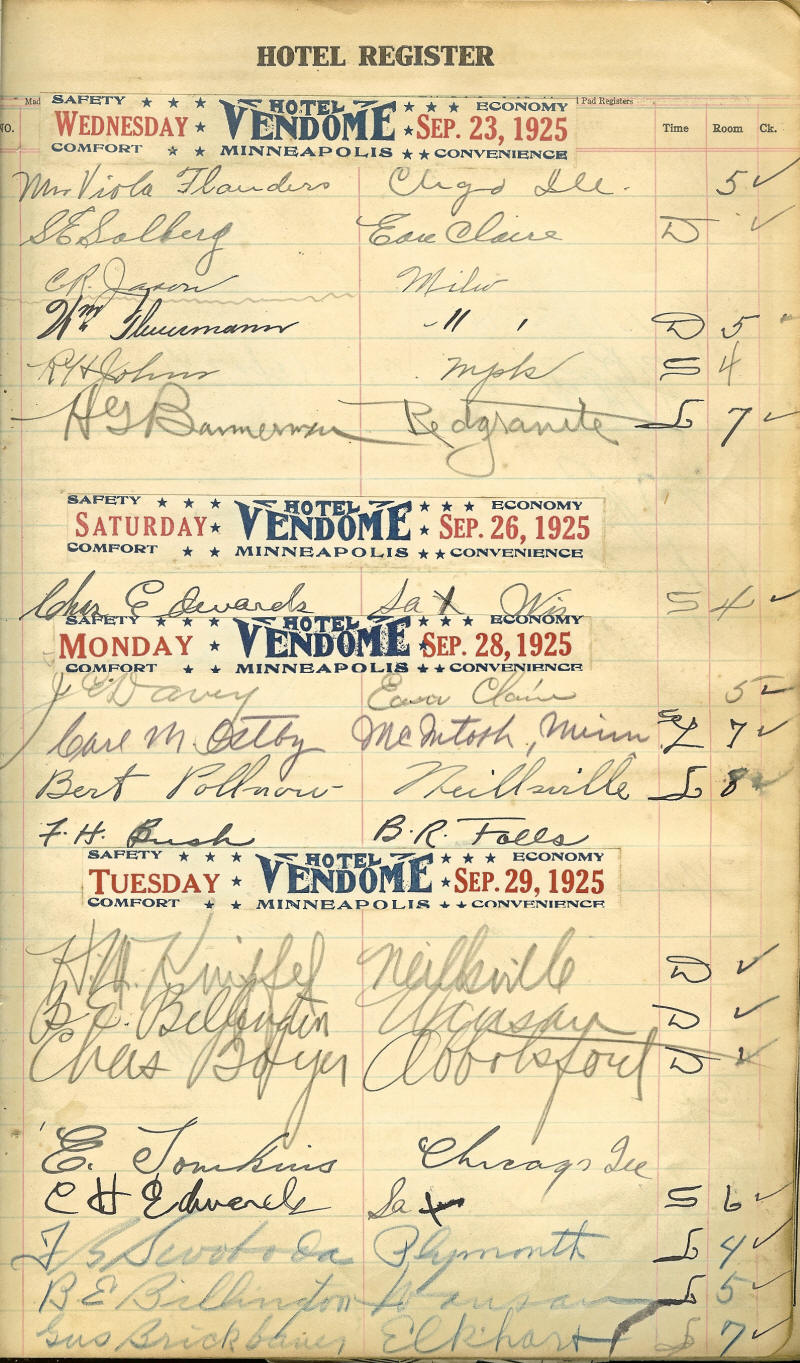 HOTEL REGISTER
Mad l Pad Registers
NO. Time Room Ck.
SAFETY HOTEL ECONOMY
WEDNESDAY VENDOME SEP. 23, 1925
COMFORT MINNEAPOLIS CONVENIENCE
Mrs Viola Flanders Chgo Ill. 5 ✓
S E Solberg Eau Claire D ✓
C.R. Jaxon Milw
Wm " " D 5
R H Johns mpls S 4
H G Bannerman Redgranite L 7 ✓
SAFETY HOTEL ECONOMY
SATURDAY VENDOME SEP. 26, 1925
COMFORT MINNEAPOLIS CONVENIENCE
Chas Edwards La X Wis S 4 ✓
SAFETY HOTEL ECONOMY
MONDAY VENDOME SEP. 28, 1925
COMFORT MINNEAPOLIS CONVENIENCE
J E Davey Eau Claire 5 ✓
Carl M. Ostby McIntosh, Minn L 7 ✓
Bert Pollnow Neillsville L 8 ✓
F. H. Bush B. R. Falls
SAFETY HOTEL ECONOMY
TUESDAY VENDOME SEP. 29, 1925
COMFORT MINNEAPOLIS CONVENIENCE
H. W. Neillsville D ✓
B. E. Billington Wausau D ✓
Chas Boyer Abbotsford D ✓
E. Tomkins Chicago Ill
C H Edwards La X S 6 ✓
F B Swoboda Plymouth L 4 ✓
B E Billington Wausau L 5 ✓
Gus Brickbauer Elkhart L 7 ✓